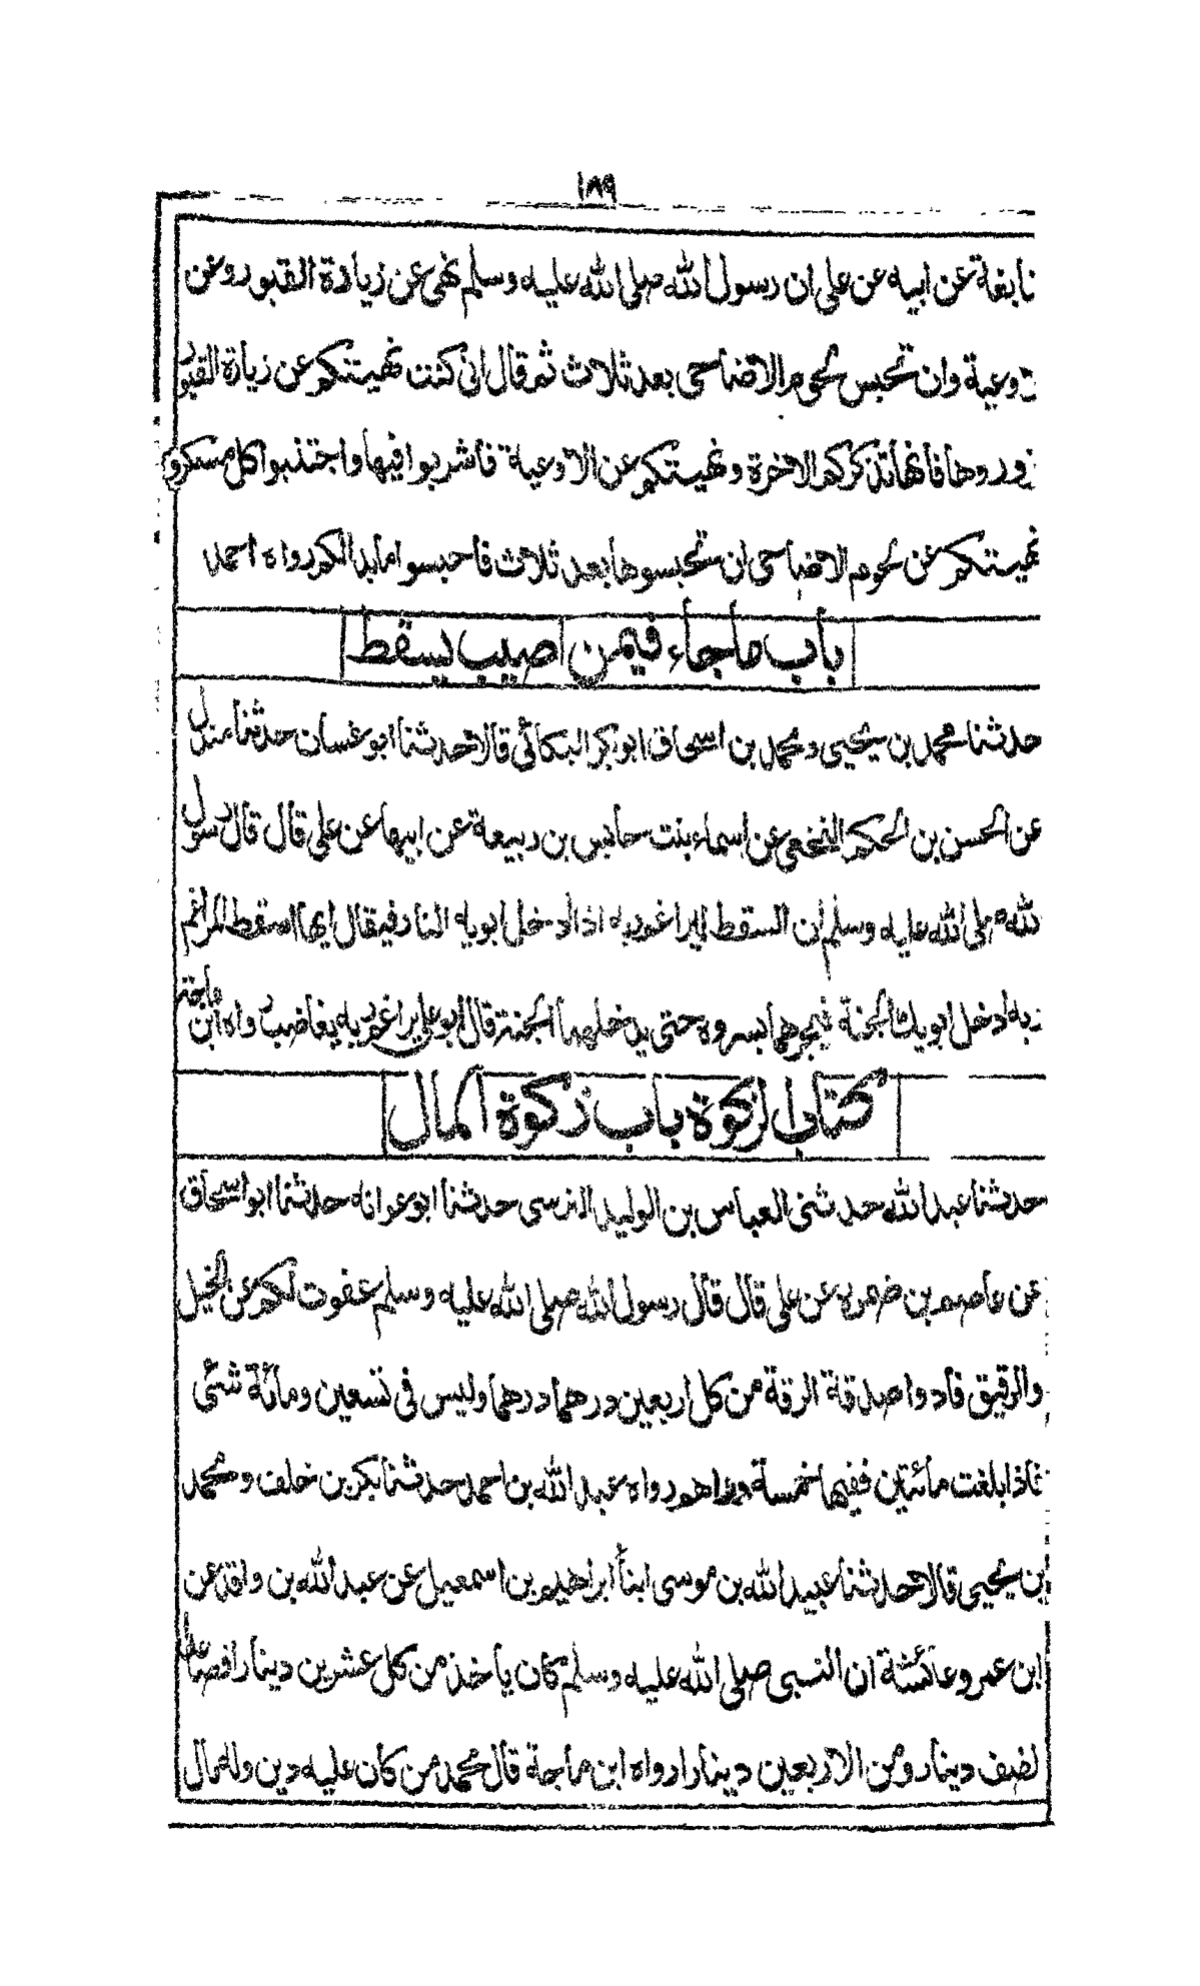 ١٨٩
نابغة عن ابيه عن علي ان رسول الله صلى الله عليه وسلم نهى عن زيارة القبور وعن
وعية وان تحبس لحوم الاضاحي بعد ثلاث ثم قال انى كنت نهيتكم عن زيارة القبور
زوروها فانها تذكركم الاخرة ونهيتكم عن الاوعية فاشربوا فيها واجتنبوا كل مسكر و
نهيتكم عن لحوم الاضاحي ان تحبسوها بعد ثلاث فاحبسوا ما بدا لكم رواه احمد
باب ما جاء فيمن اصيب بسقط
حدثنا محمد بن يحيى ومحمد بن اسحاق ابو بكر البكائي قالا حدثنا ابو غسان حدثنا مندل
عن الحسن بن الحكم النخعي عن اسماء بنت حابس بن ربيعة عن ابيها عن علي قال قال رسول
لله صلى الله عليه وسلم ان السقط ليراغم ربه اذا ادخل ابويه النار فيقال ايها السقط المراغم
ربه ادخل ابويك الجنة فيجرهما بسرره حتى يدخلهما الجنة قال ابو علي يراغم ربه يغاضب رواه ابن ماجة
كتاب الزكوة باب زكوة المال
حدثنا عبد الله حدثنى العباس بن الوليد النرسى حدثنا ابو عوانة حدثنا ابو اسحاق
عن عاصم بن ضمرة عن علي قال قال رسول الله صلى الله عليه وسلم عفوت لكم عن الخيل
والرقيق فادوا صدقة الرقة من كل اربعين درهما درهما وليس فى تسعين ومائة شئى
فاذا بلغت مائتين ففيها خمسة دراهم رواه عبد الله بن احمد حدثنا بكر بن خلف ومحمد
بن يحيى قالا حدثنا عبيد الله بن موسى انبأ ابراهيم بن اسمعيل عن عبد الله بن واقد عن
ابن عمر وعائشة ان النبى صلى الله عليه وسلم كان ياخذ من كل عشرين دينارا فصاعدا
نصف دينار ومن الاربعين دينارا رواه ابن ماجة قال محمد من كان عليه دين وله مال